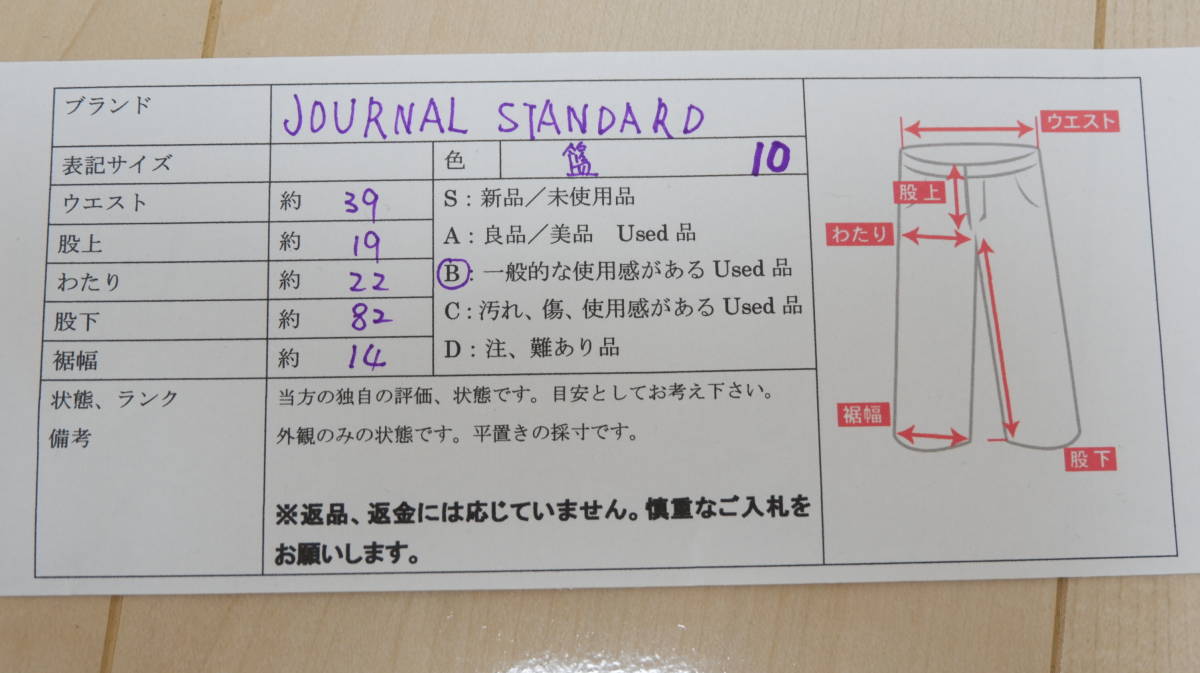 ブランド JOURNAL STANDARD
表記サイズ 色 10
ウエスト 約 39
股上 約 19
わたり 約 22
股下 約 82
裾幅 約 14
S：新品／未使用品
A：良品／美品 Used 品
B：一般的な使用感がある Used 品
C：汚れ、傷、使用感がある Used 品
D：注、難あり品
状態、ランク
備考
当方の独自の評価、状態です。目安としてお考え下さい。
外観のみの状態です。平置きの採寸です。
※返品、返金には応じていません。慎重なご入札を
お願いします。
ウエスト
股上
わたり
裾幅
股下